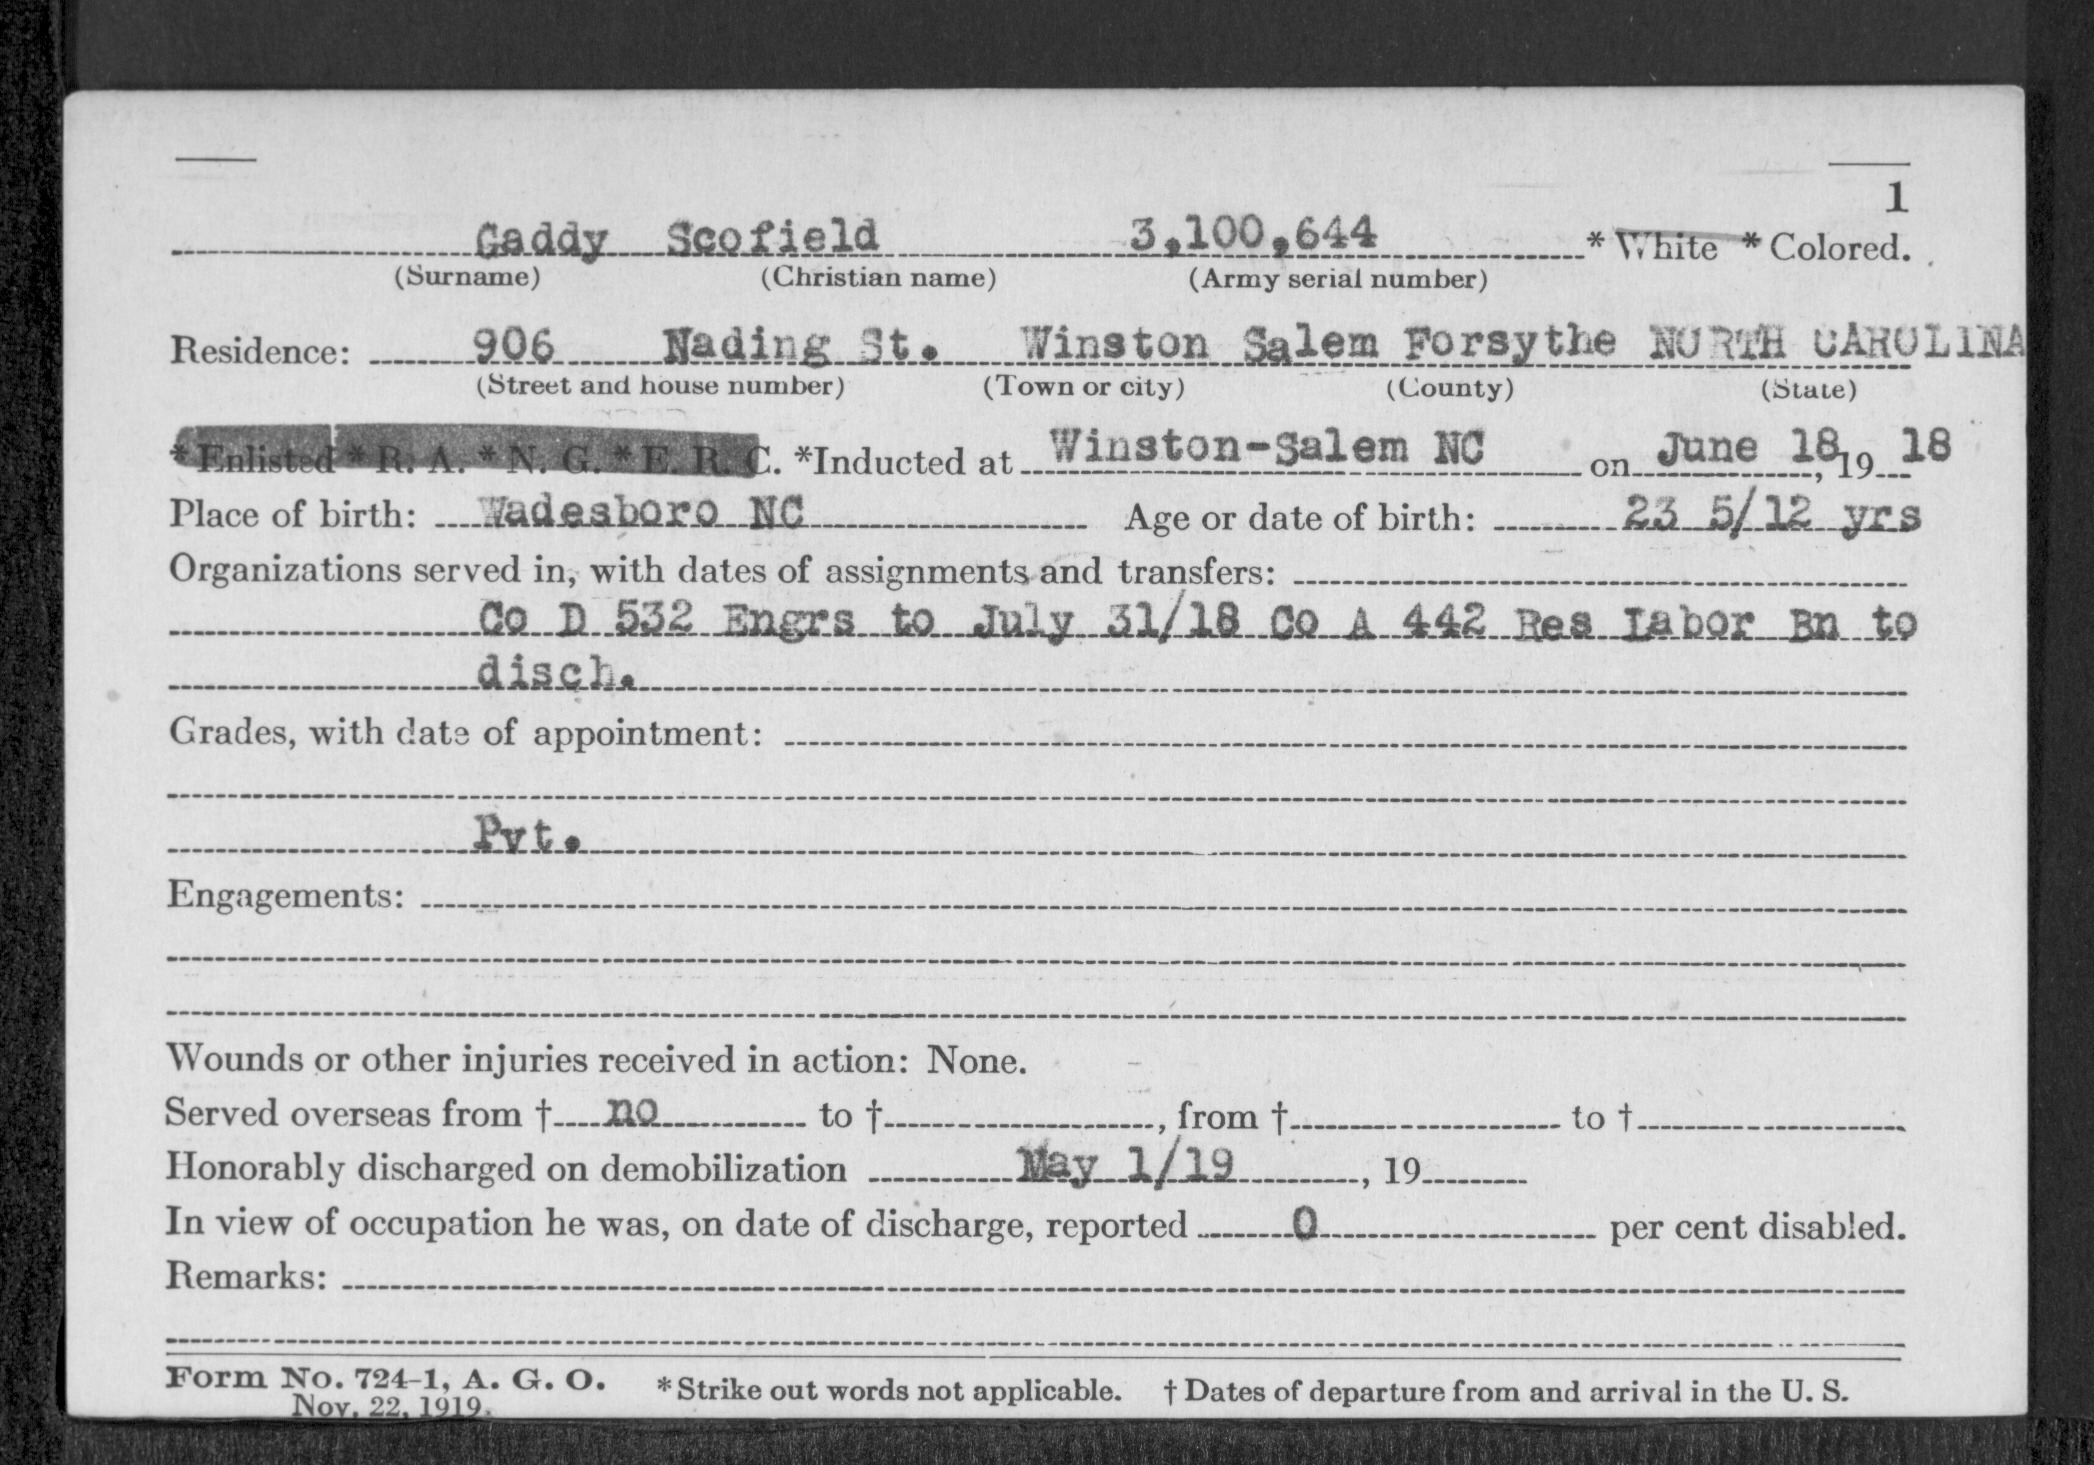 1
Gaddy Scofield 3,100,644 * White * Colored.
(Surname) (Christian name) (Army serial number)
Residence: 906 Nading St. Winston Salem Forsythe NORTH CAROLINA
(Street and house number) (Town or city) (County) (State)
* Enlisted * R. A. * N. G. * E. R. C. *Inducted at Winston-Salem NC on June 18, 19 18
Place of birth: Wadesboro NC Age or date of birth: 23 5/12 yrs
Organizations served in, with dates of assignments and transfers:
Co D 532 Engrs to July 31/18 Co A 442 Res Labor Bn to
disch.
Grades, with date of appointment:
Pvt.
Engagements:
Wounds or other injuries received in action: None.
Served overseas from † no to †, from † to †
Honorably discharged on demobilization May 1/19, 19
In view of occupation he was, on date of discharge, reported 0 per cent disabled.
Remarks:
Form No. 724-1, A. G. O. * Strike out words not applicable. † Dates of departure from and arrival in the U. S.
Nov. 22, 1919.